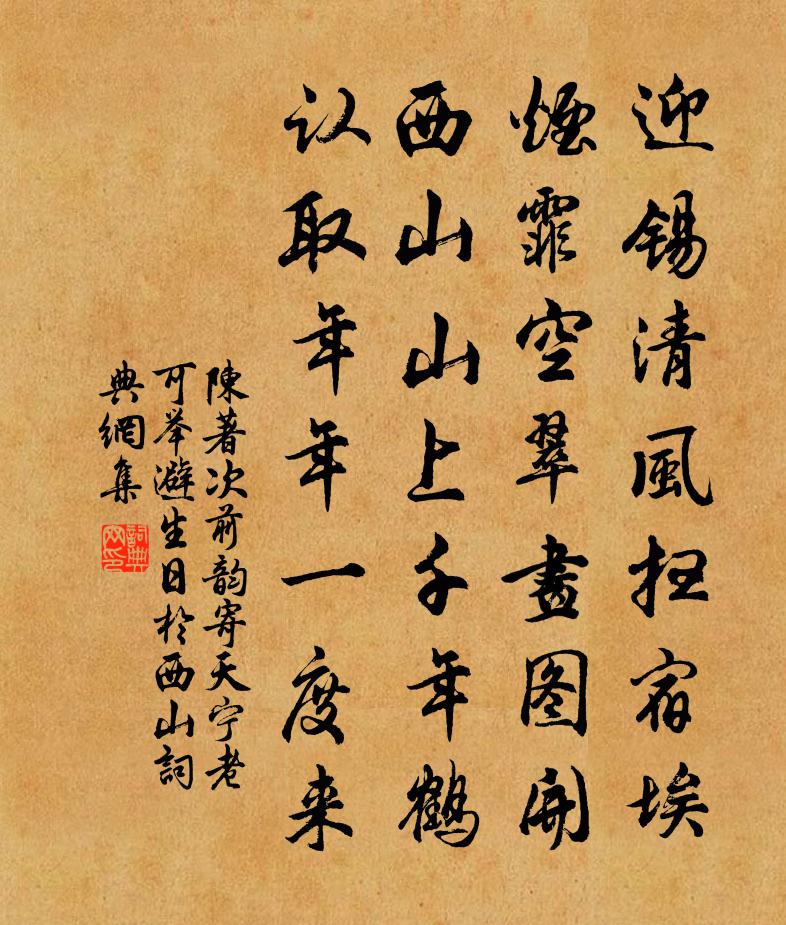 迎锡清風扫宿埃
煙霏空翠畫图開
西山山上千年鶴
认取年年一度来
陳著次前韵寄天宁老
可举避生日於西山詞
典網集
詞典网印